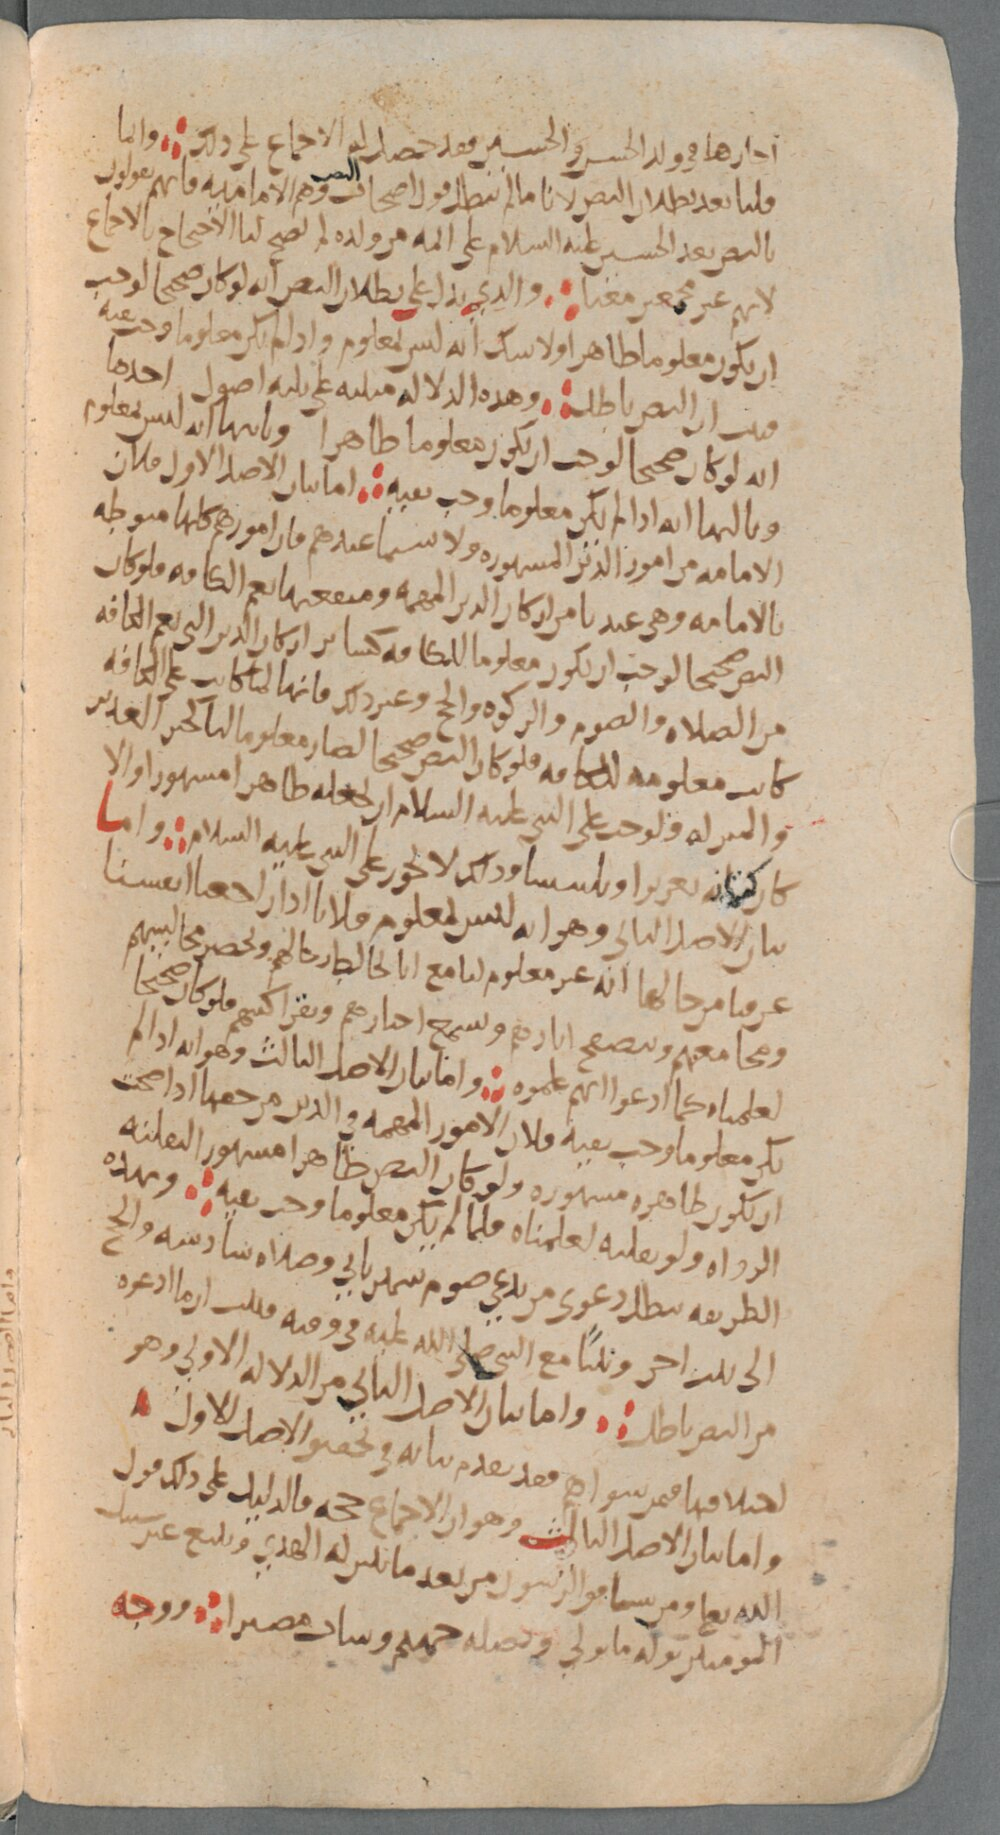 اجازها في ولد الحسن والحسين فقد حصل لنا الاجماع على ذلك ؞ وانما
قلنا بعد بطلان النص لانا ما لم نبطل قول اصحاب النص وهم الامامية فانهم يقولون
بالنص بعد الحسين عليه السلام على ائمة من ولده لم تصح لنا الاحتجاج بالاجماع
لانهم غير مجمعين معنا ؞ والذي يدل على بطلان النص انه لو كان صحيحا لوجب
ان يكون معلوما ظاهرا ولا شك انه ليس بمعلوم واذا لم يكن معلوما وجب نفيه
فثبت ان النص باطل ؞ وهذه الدلالة مبنية على ثلثة اصول احدها
انه لو كان صحيحا لوجب ان يكون معلوما ظاهرا وثانيها انه ليس بمعلوم
وثالثها انه اذا لم يكن معلوما وجب نفيه ؞ اما بيان الاصل الاول فلان
الامامة من امور الدين المشهورة ولا سيما عندهم فان امورهم كلها منوطة
بالامامة وهي عندنا من اركان الدين المهمة ومنفعتها تعم الكافة فلو كان
النص صحيحا لوجب ان يكون معلوما للكافة كسائر اركان الدين التي تعم الكافة
من الصلاة والصوم والزكوة والحج وغير ذلك فانها لما كانت على الكافة
كانت معلومة للكافة فلو كان النص صحيحا لصار معلوما لنا كخبر الغدير
والمنزلة ولوجب على النبي عليه السلام ان يجعله ظاهرا مشهورا والا
كان كتمانه تغريرا وتلبيسا وذلك لا يجوز على النبي عليه السلام ؞ واما
بيان الاصل الثاني وهو انه ليس بمعلوم فلانا اذا راجعنا انفسنا
عرفنا من حالها انه غير معلوم لنا مع انا نخالط رجالهم ونحضر مجالسهم
ومجامعهم ونتصفح اثارهم ونسمع اخبارهم ونقرا كتبهم فلو كان صحيحا
لعلمناه كما ادعوا انهم علموه ؞ واما بيان الاصل الثالث وهو انه اذا لم
يكن معلوما وجب نفيه فلان الامور المهمة في الدين من حقها اذا صحت
ان تكون ظاهرة مشهورة ولو كان النص ظاهرا مشهورا لنقلته
الرواة ولو نقلته لعلمناه فلما لم يكن معلوما وجب نفيه ؞ وبهذه
الطريقة نبطل دعوى من يدعي صوم شهر ثاني وصلاة سادسة والحج
الى بيت اخر ونبيا مع النبي صلى الله عليه في وقته فثبت ان ما ادعوه
من النص باطل ؞ واما بيان الاصل الثاني من الدلالة الاولى وهو
اختلافها فيمن سواهم فقد تقدم بيانه في تحقيق الاصل الاول
واما بيان الاصل الثالث وهو ان الاجماع حجة فالدليل على ذلك قول
الله تعا ومن يشاقق الرسول من بعد ما تبين له الهدي ويتبع غير سبيل
المومنين نوله ما تولي ونصله جهنم وسات مصيرا ؞ ووجه